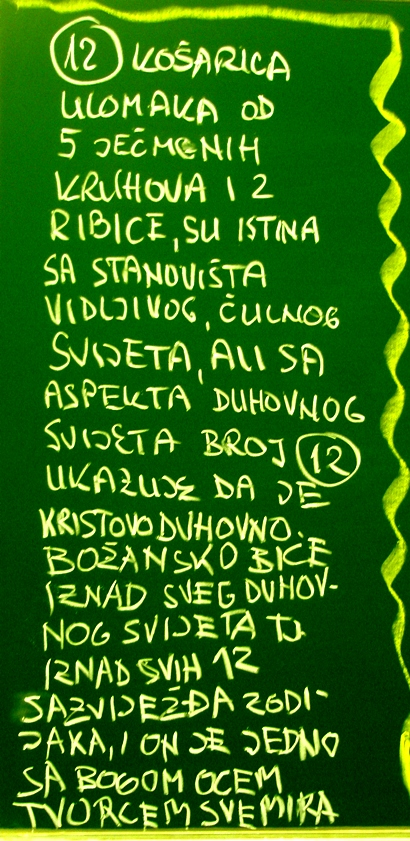 12 KOŠARICA
ULOMAKA OD
5 JEČMENIH
KRUHOVA I 2
RIBICE, SU ISTINA
SA STANOVIŠTA
VIDLJIVOG, ČULNOG
SVIJETA, ALI SA
ASPEKTA DUHOVNOG
SVIJETA BROJ 12
UKAZUJE DA JE
KRISTOVO DUHOVNO-
BOŽANSKO BIĆE
IZNAD SVEG DUHOV-
NOG SVIJETA TJ.
IZNAD SVIH 12
SAZVIJEŽĐA ZODI-
JAKA, I ON JE JEDNO
SA BOGOM OCEM
TVORCEM SVEMIRA